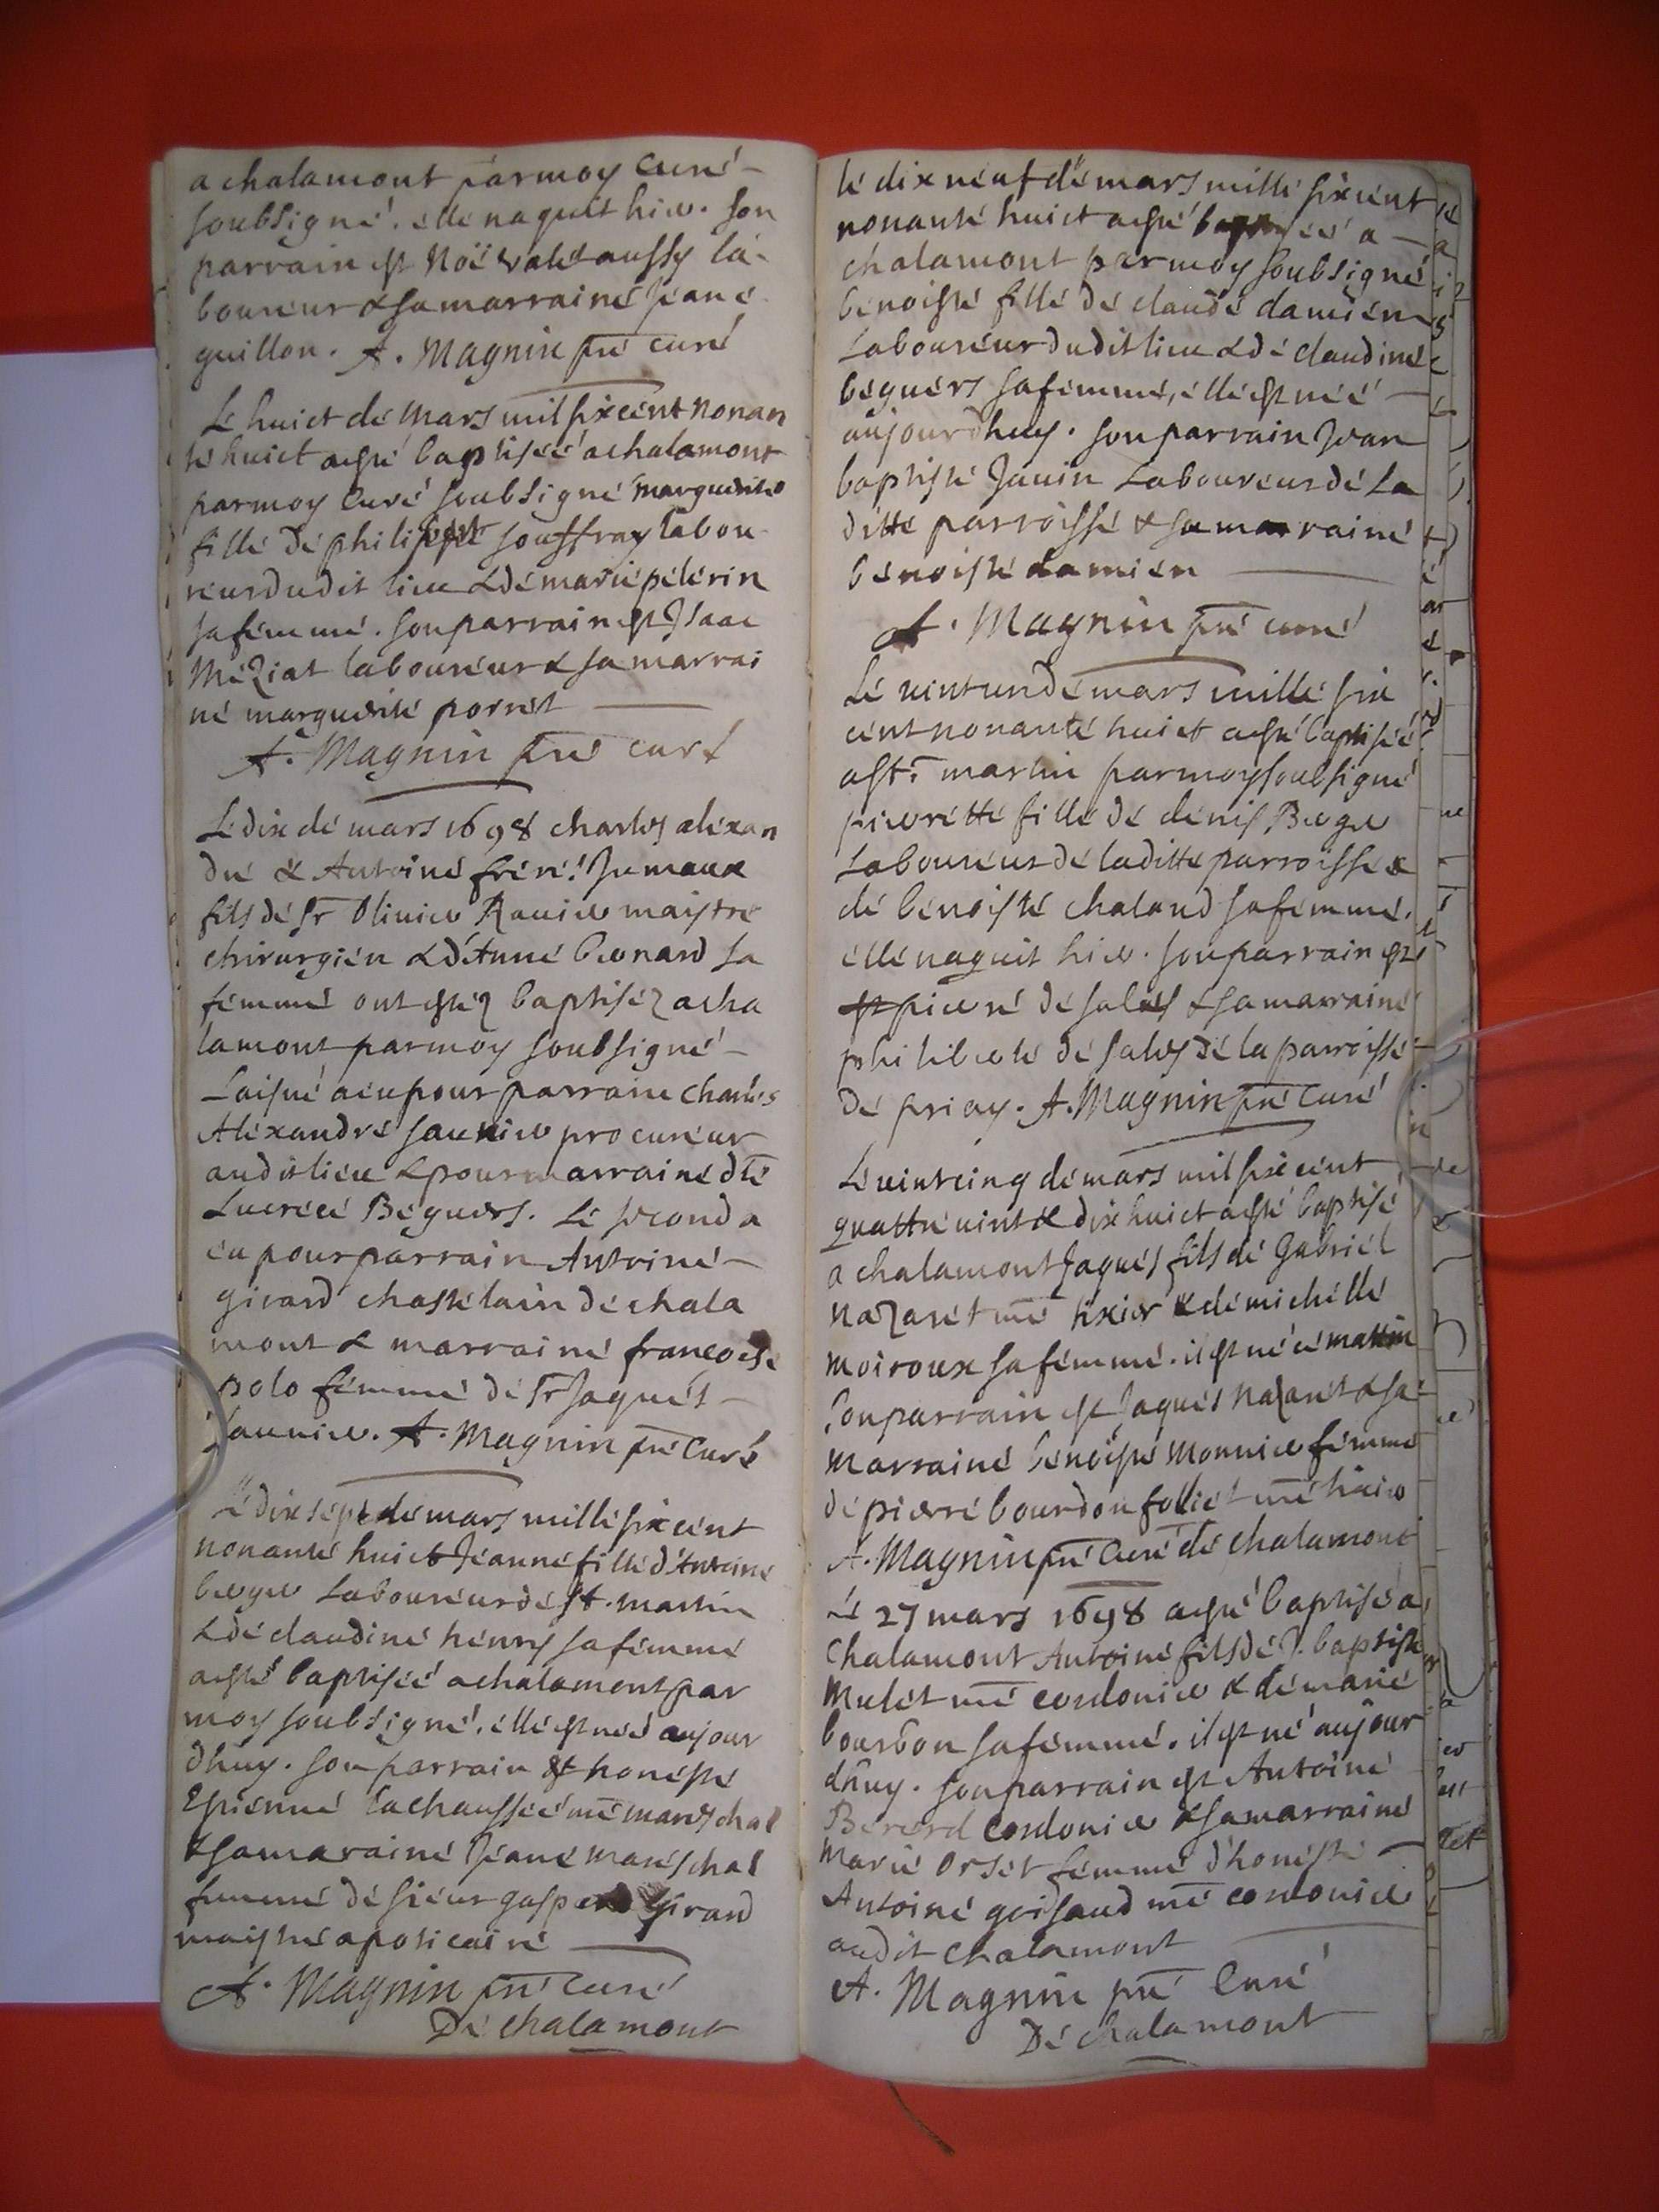 a chalamont par moy curé
soubsigné. elle naquit hier. son
parrain est Noë valet aussy la-
boureur & sa marraine Jeane
guillon. A. Magnin pre curé
Le huict de mars mil six cent nonan
te huict a esté baptiseé a chalamont
par moy curé soubsigné marguerite
fille de philipe souffray labou
reur dudit lieu & de marie pelerin
sa femme. son parrain est Isaac
Méziat laboureur & sa marrai
ne marguerite porret
A. Magnin pre curé
Le dix de mars 1698 charles alexan
dre & Antoine frere! Jumaux
fils de Sr Olivier Ravier maistre
chirurgien & d'Anne bernard sa
femme ont estez baptisez a cha
lamont par moy soubsigné
Laisné a eu pour parrain Charles
Alexandre saunier procureur
audit lieu & pour marraine dlle
Lucrece Beguers. Le second a
eu pour parrain Antoine
girard chastelain de chala
mont & marraine francoise
polo femme de Sr Jaques
saunier. A. Magnin pre Curé
Le dix sept de mars mille six cent
nonante huict Jeanne fille d'Antoine
berger Laboureur de st. martin
& de claudine henry sa femme
a esté baptiseé a chalamont par
moy soubsigné. elle est neé aujour
dhuy. son parrain est honeste
Estienne lachausseé me mareschal
& sa maraine Jeane mareschal
femme de sieur gaspard girard
maistre apoticaire
A. Magnin pre Curé
De chalamont
le dix neuf de mars mille six cent
nonante huict a esté baptiseé a
chalamont par moy soubsigné
benoiste fille de claude damien
Laboureur dudit lieu & de claudine
beguers sa femme, elle est neé
aujourdhuy. son parrain Jean
baptiste Janin Laboureur de La
ditte parroisse & sa marraine
benoiste damien
A. Magnin pre curé
Le vint un de mars mille six
cent nonante huict a esté baptiseé
a st. martin par moy soubsigné
pierrette fille de denis Berger
Laboureur de laditte parroisse &
de benoiste chaland sa femme.
elle naquit hier. son parrain est
est pierre de sales & sa marraine
philiberte de sales de la parroisse
de priay. A. Magnin pre Curé
Le vint cinq de mars mil six cent
quattre vint & dix huict a esté baptisé
a chalamont Jaques fils de Gabriel
nazaret me tixier & de michelle
moiroux sa femme. il est né ce mattin
son parrain est Jaques nazaret & sa
marraine benoiste Monnier femme
de pierre bourdon folliet me tixier
A. Magnin pre Curé de chalamont
Le 27 mars 1698 a esté baptisé a
Chalamont Antoine fils de J. baptiste
Mulet me cordonier & de marie
bourbon sa femme. il est né aujour
dhuy. son parrain est Antoine
Bererd Cordonier & sa marraine
Marie Orset femme d'honeste
Antoine goisaud me cordonier
audit chalamont
A. Magnin pre Curé
De chalamont